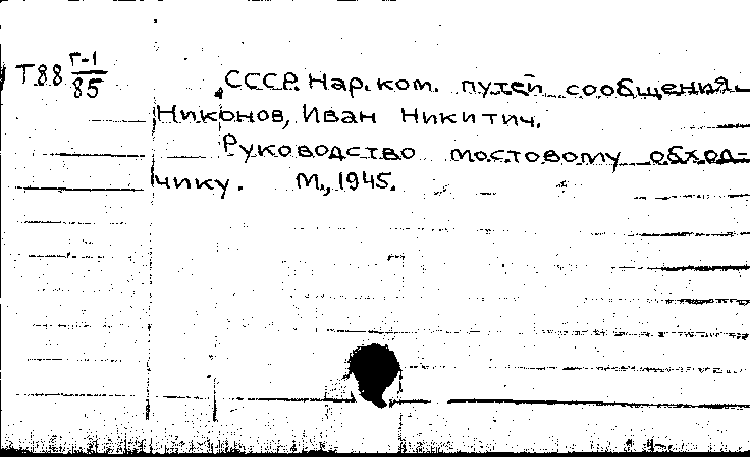 Т88 Г-1/85
СССР. Нар. ком. путей сообщения.
Никонов, Иван Никитич.
Руководство мостовому обход-
чику. М., 1945.